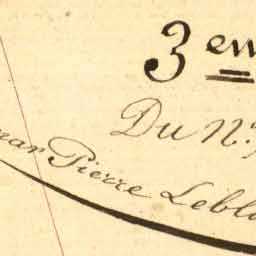 3em
Du N.
Pierre Lebl